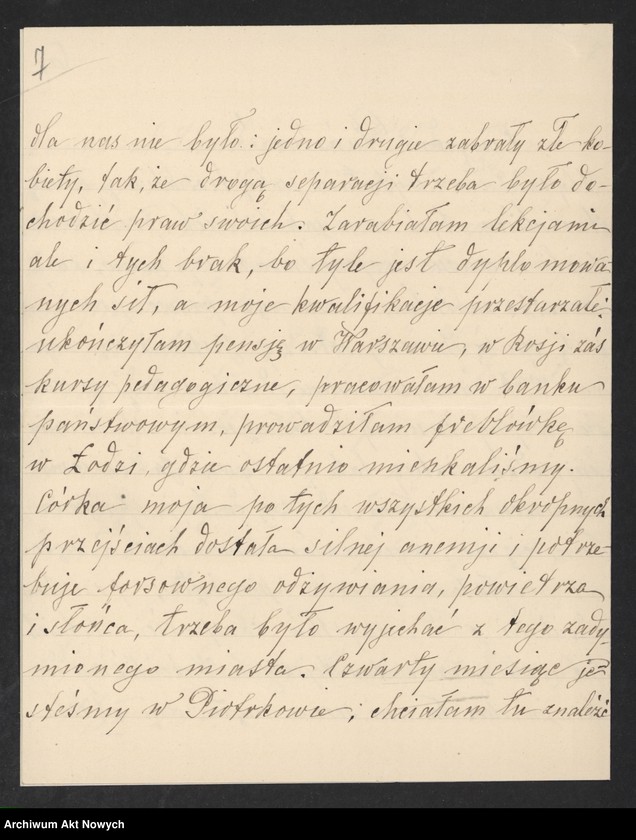 7
dla nas nie było: jedno i drugie zabrały złe ko-
biety, tak, że drogą separacji trzeba było do-
chodzić praw swoich. Zarabiałam lekcjami
ale i tych brak, bo tyle jest dyplomowa-
nych sił, a moje kwalifikacje przestarzałe:
ukończyłam pensję w Warszawie, w Rosji zaś
kursy pedagogiczne, pracowałam w banku
państwowym, prowadziłam freblówkę
w Łodzi, gdzie ostatnio mieszkaliśmy.
Córka moja po tych wszystkich okropnych
przejściach dostała silnej anemji i potrze-
buje forsownego odżywiania, powietrza
i słońca, trzeba było wyjechać z tego zady-
mionego miasta. Czwarty miesiąc je-
steśmy w Piotrkowie; chciałam tu znaleźć
Archiwum Akt Nowych